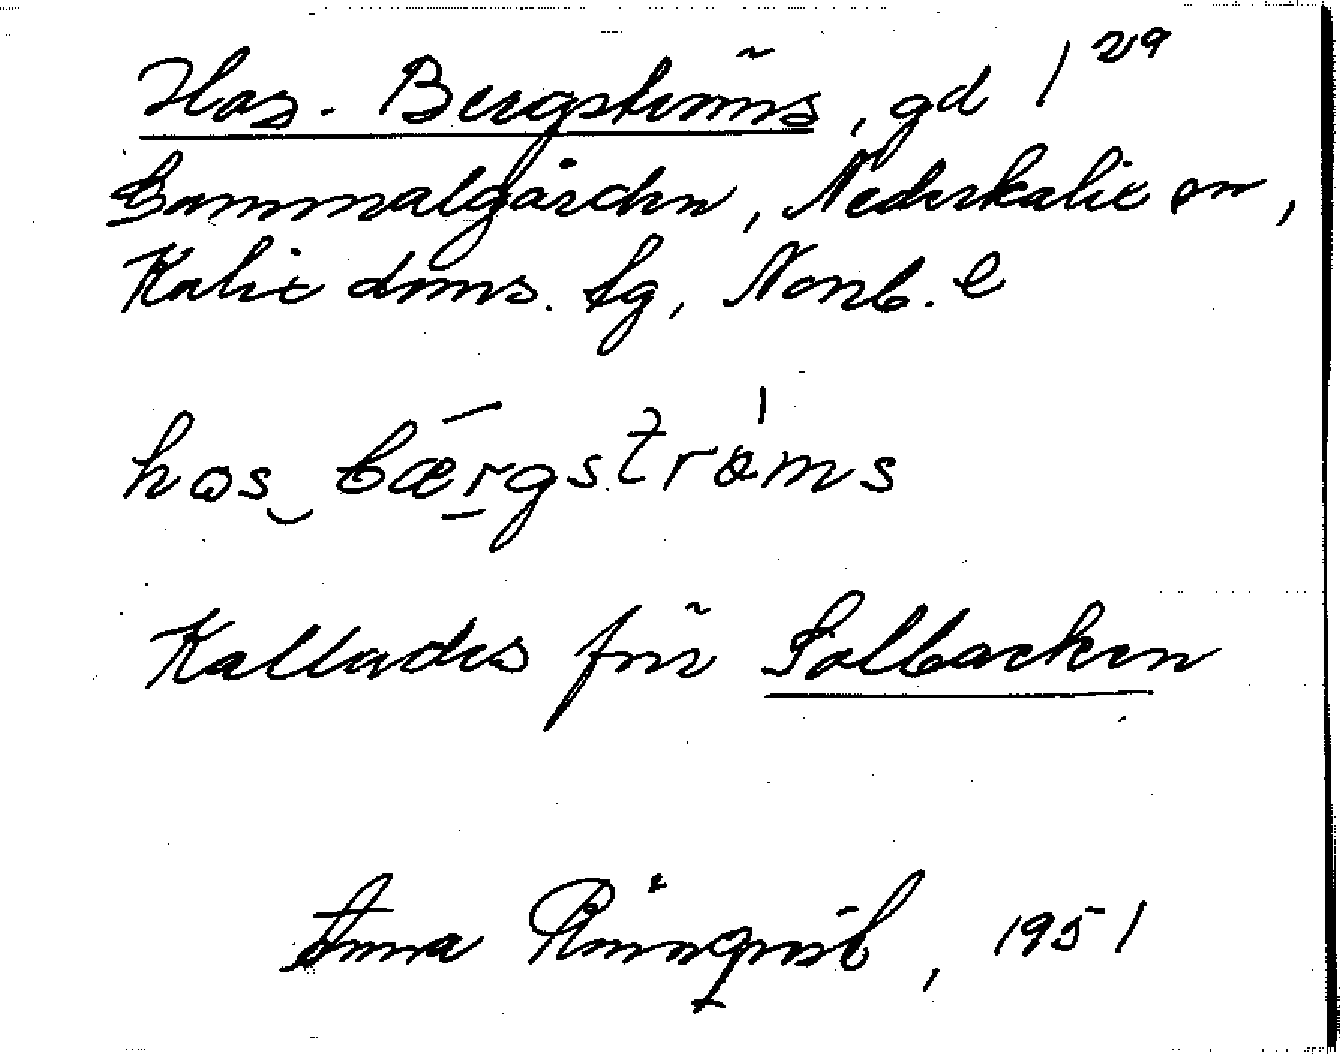 Hos. Bergströms, gd 1 29
Gammalgården, Nederkalix sn,
Kalix doms. tg, Norrb. l
hos bærgstrøms
Kallades för Solbacken
Anna Rönnqvist, 1951